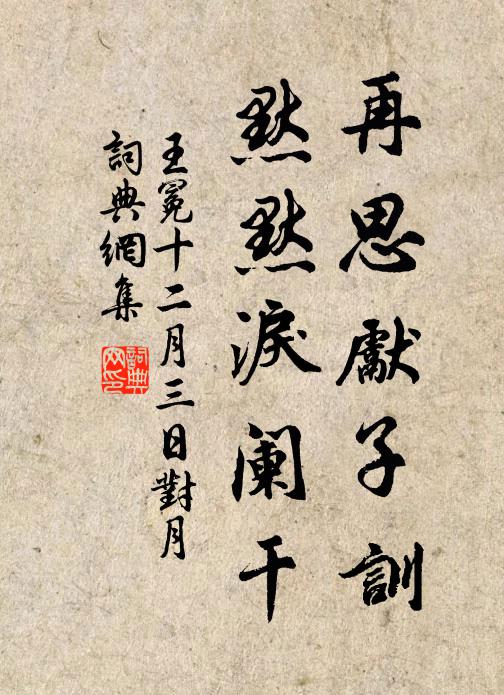 再思獻子訓
默默淚阑干
王冕十二月三日對月
詞典網集
詞典网印